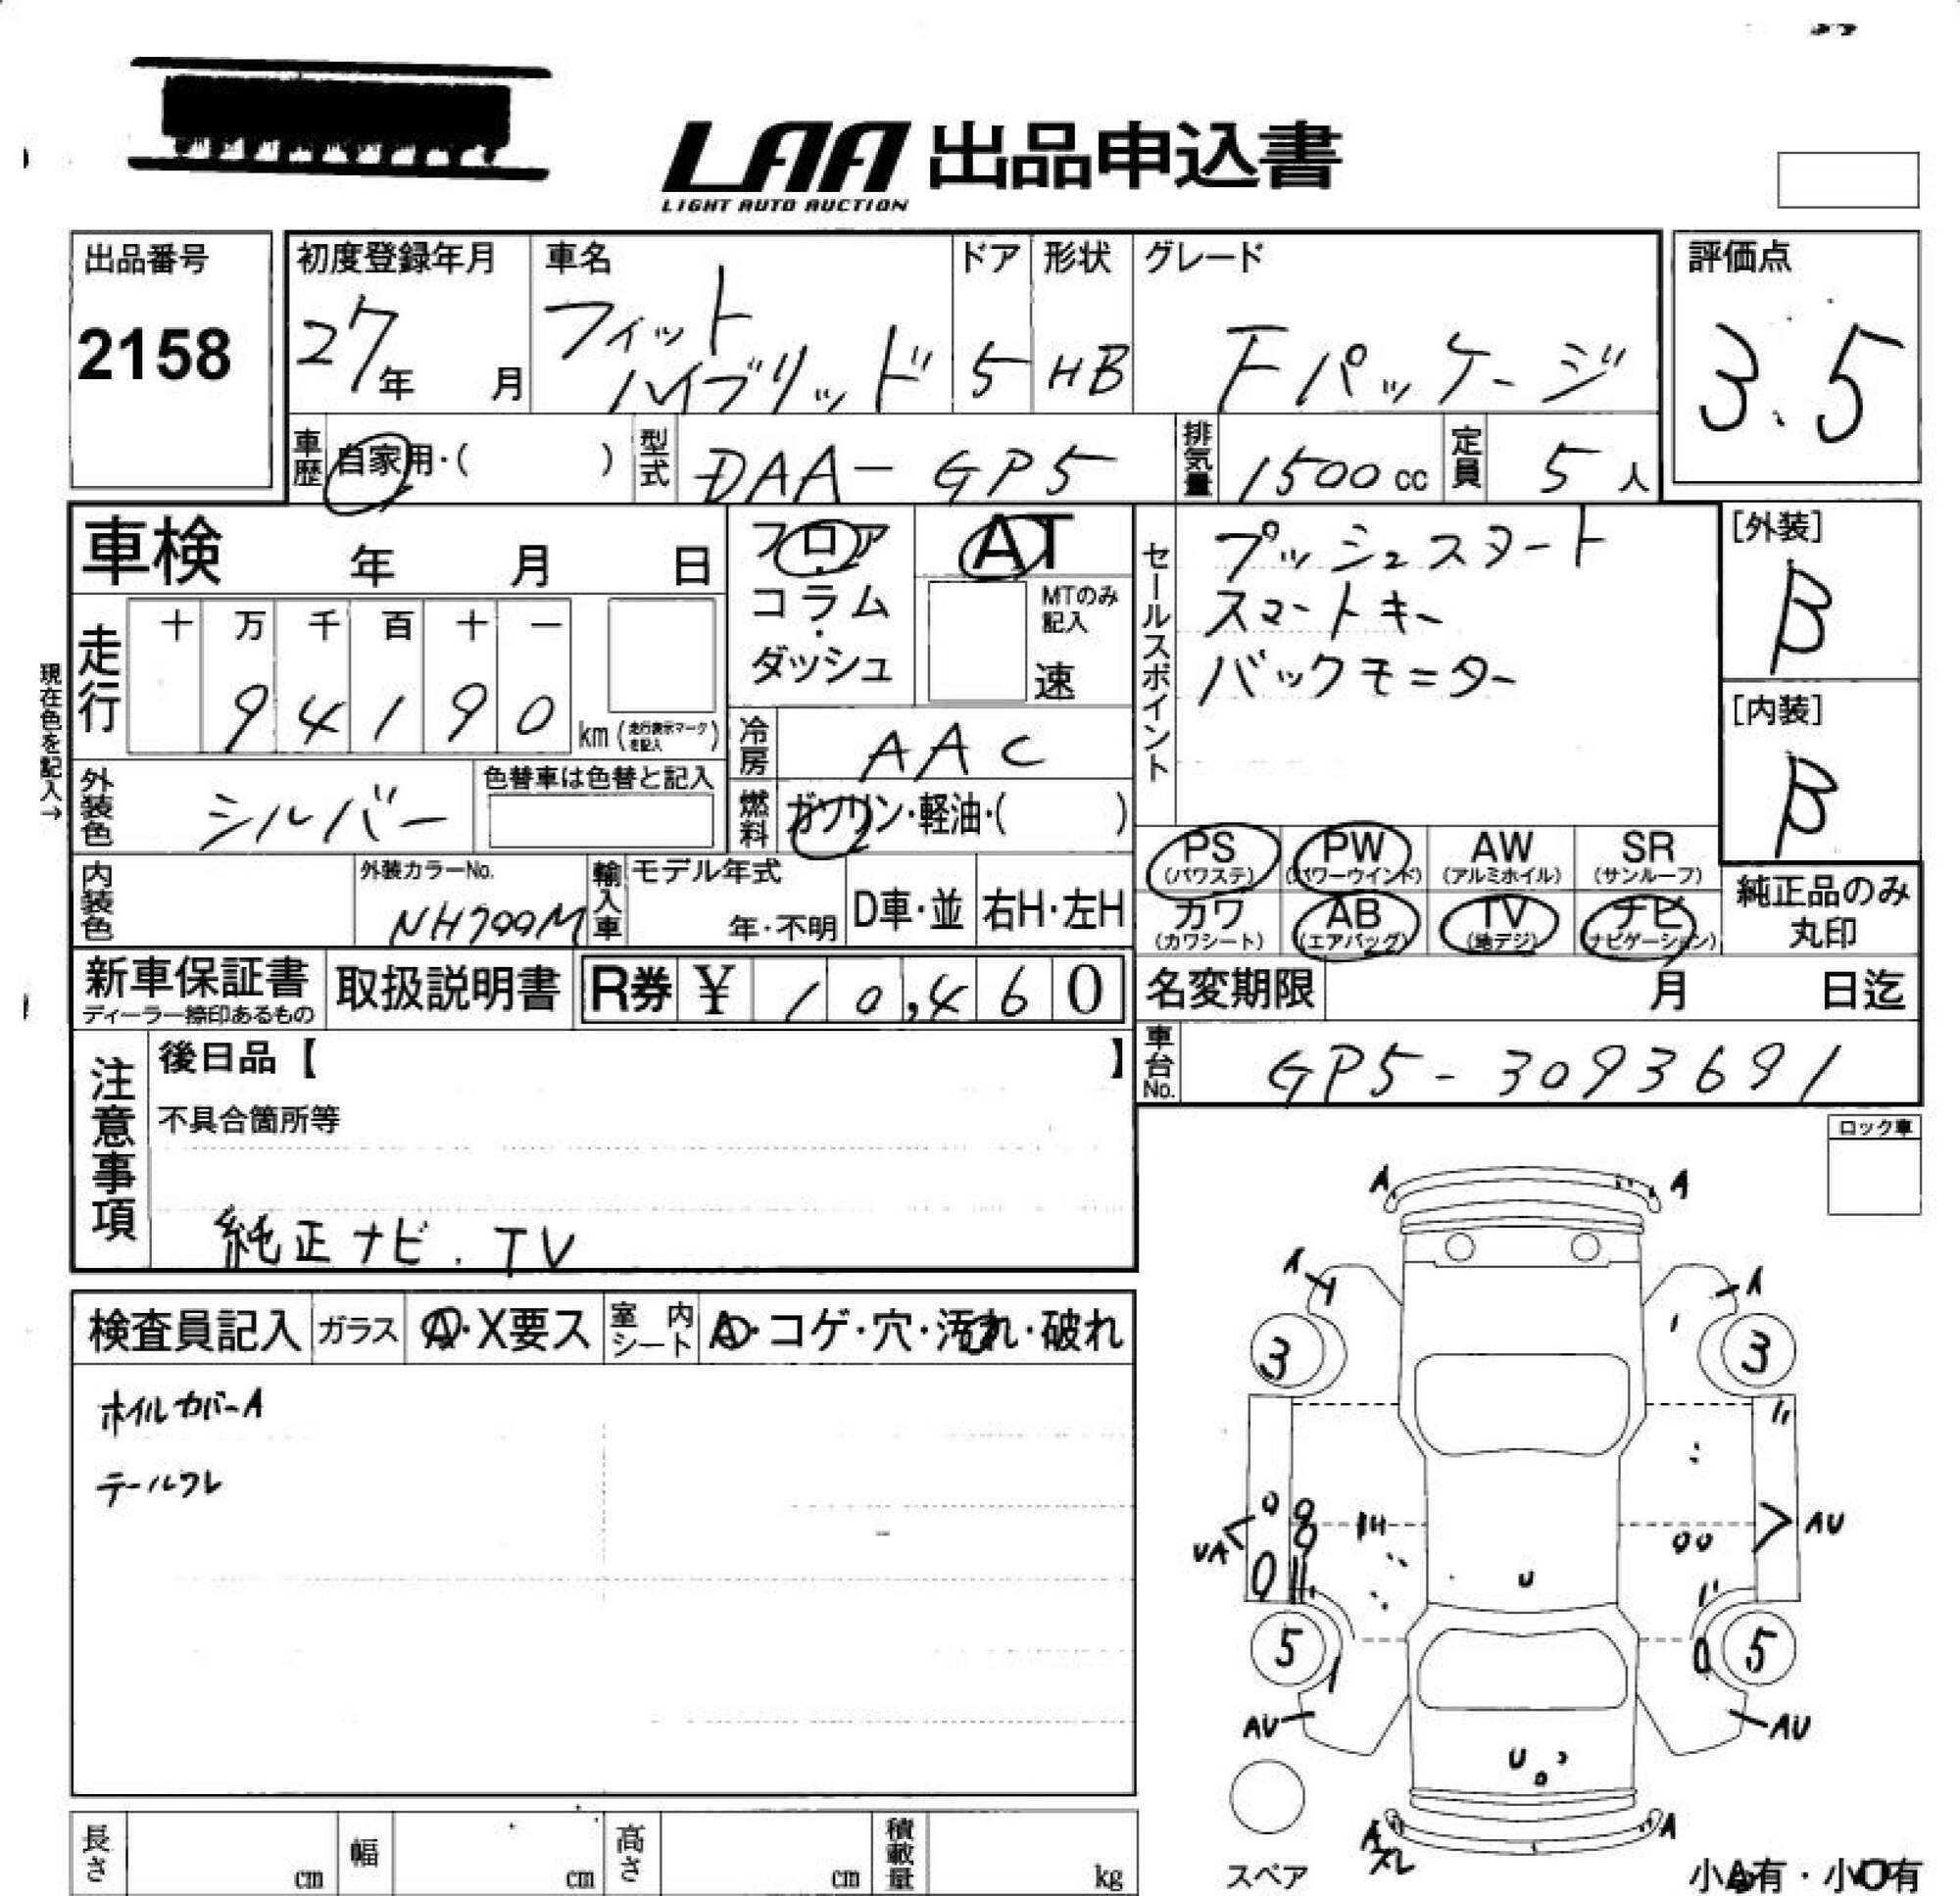 LAA 出品申込書
LIGHT AUTO AUCTION
出品番号
2158
初度登録年月
27年 月
車名
フィット
ハイブリッド
ドア
5
形状
HB
グレード
Fパッケージ
評価点
3.5
車歴 自家用・( )
型式 DAA-GP5
排気量 1500cc
定員 5人
車検 年 月 日
フロア・コラム・ダッシュ
AT
MTのみ記入
速
セールスポイント
プッシュスタート
スマートキー
バックモニター
[外装]
B
[内装]
B
現在色を記入→
走行 十 万 千 百 十 一
94190 km (走行表示マークを記入)
冷房 AAC
外装色 シルバー
色替車は色替と記入
燃料 ガソリン・軽油・( )
PS (パワステ) PW (パワーウインド) AW (アルミホイル) SR (サンルーフ)
カワ (カワシート) AB (エアバッグ) TV (地デジ) ナビ (ナビゲーション)
純正品のみ丸印
内装色
外装カラーNo.
NH700M
輸入車 モデル年式
年・不明
D車・並 右H・左H
新車保証書
ディーラー捺印あるもの
取扱説明書
R券 ¥ 10,460
名変期限 月 日迄
車台No. GP5-3093691
注意事項
後日品【 】
不具合箇所等
純正ナビ.TV
ロック車
検査員記入 ガラス A・X要ス 室内シート A・コゲ・穴・汚れ・破れ
ホイルカバーA
テールワレ
A A
A A
3 3
UA AU
U
5 5
AU AU
U
A A
スペア
小A有・小U有
長さ cm 幅 cm 高さ cm 積載量 kg